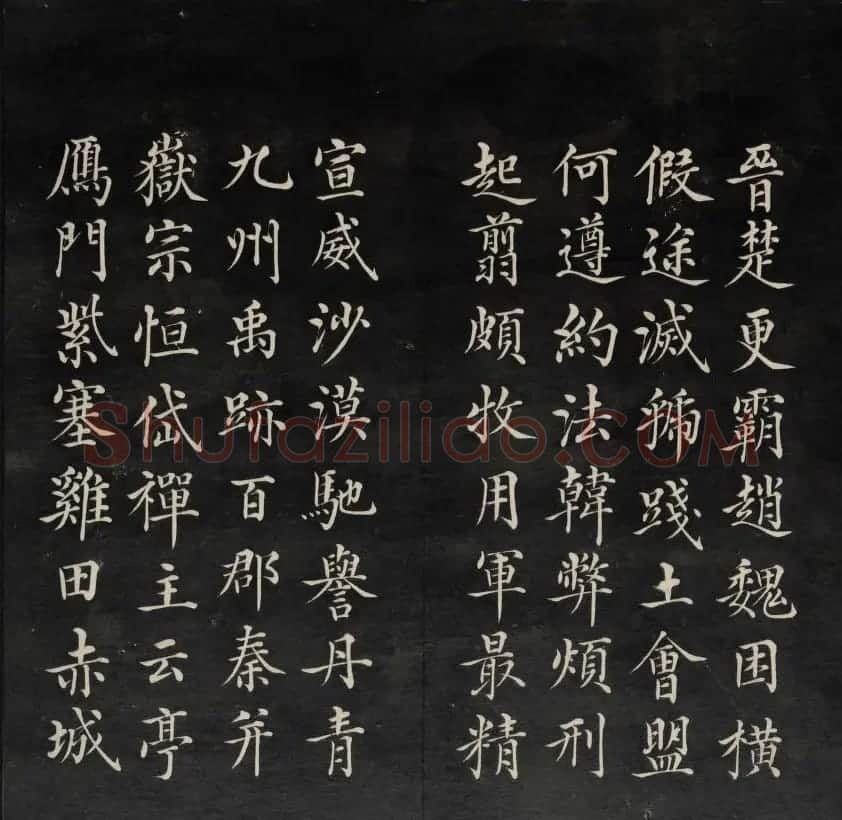 晉楚更霸趙魏困橫
假途滅虢踐土會盟
何遵約法韓弊煩刑
起翦頗牧用軍最精
宣威沙漠馳譽丹青
九州禹跡百郡秦并
嶽宗恒岱禪主云亭
鴈門紫塞雞田赤城
Shufaziliao.com